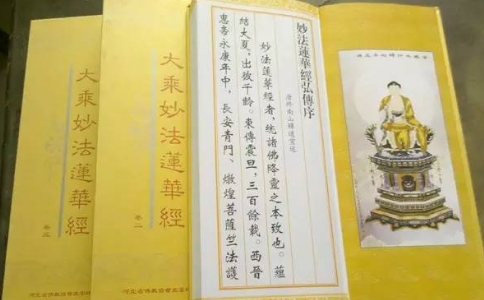 大乘妙法蓮華經
大乘妙法蓮華經
妙法蓮華經弘傳序
唐終南山釋道宣述
妙法蓮華經者，統諸佛降靈之本致也。蘊
結大夏，出彼千齡。東傳震旦，三百餘載。西晉
惠帝永康年中，長安青門、燉煌菩薩竺法護